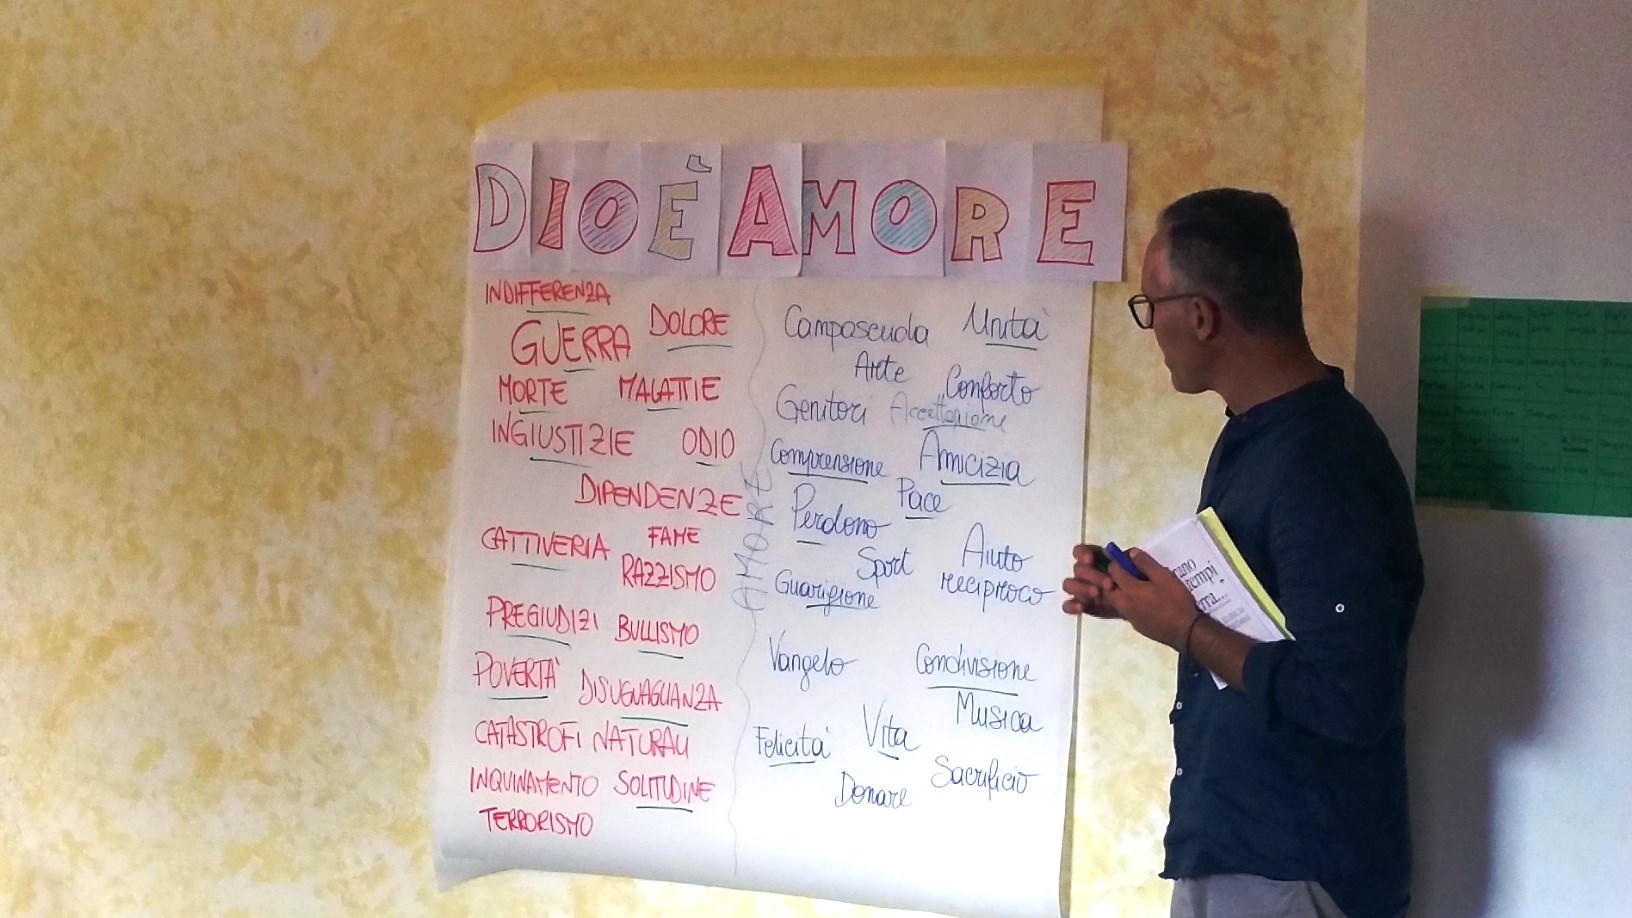 DIO È AMORE
INDIFFERENZA
GUERRA DOLORE
MORTE MALATTIE
INGIUSTIZIE ODIO
DIPENDENZE
CATTIVERIA FAME
RAZZISMO
PREGIUDIZI BULLISMO
POVERTÀ DISUGUAGLIANZA
CATASTROFI NATURALI
INQUINAMENTO SOLITUDINE
TERRORISMO
AMORE
Camposcuola Unità
Arte Conforto
Genitori Accettazione
Comprensione Amicizia
Pace
Perdono
Sport Aiuto
Guarigione reciproco
Vangelo Condivisione
Musica
Felicità Vita
Sacrificio
Donare
tempi